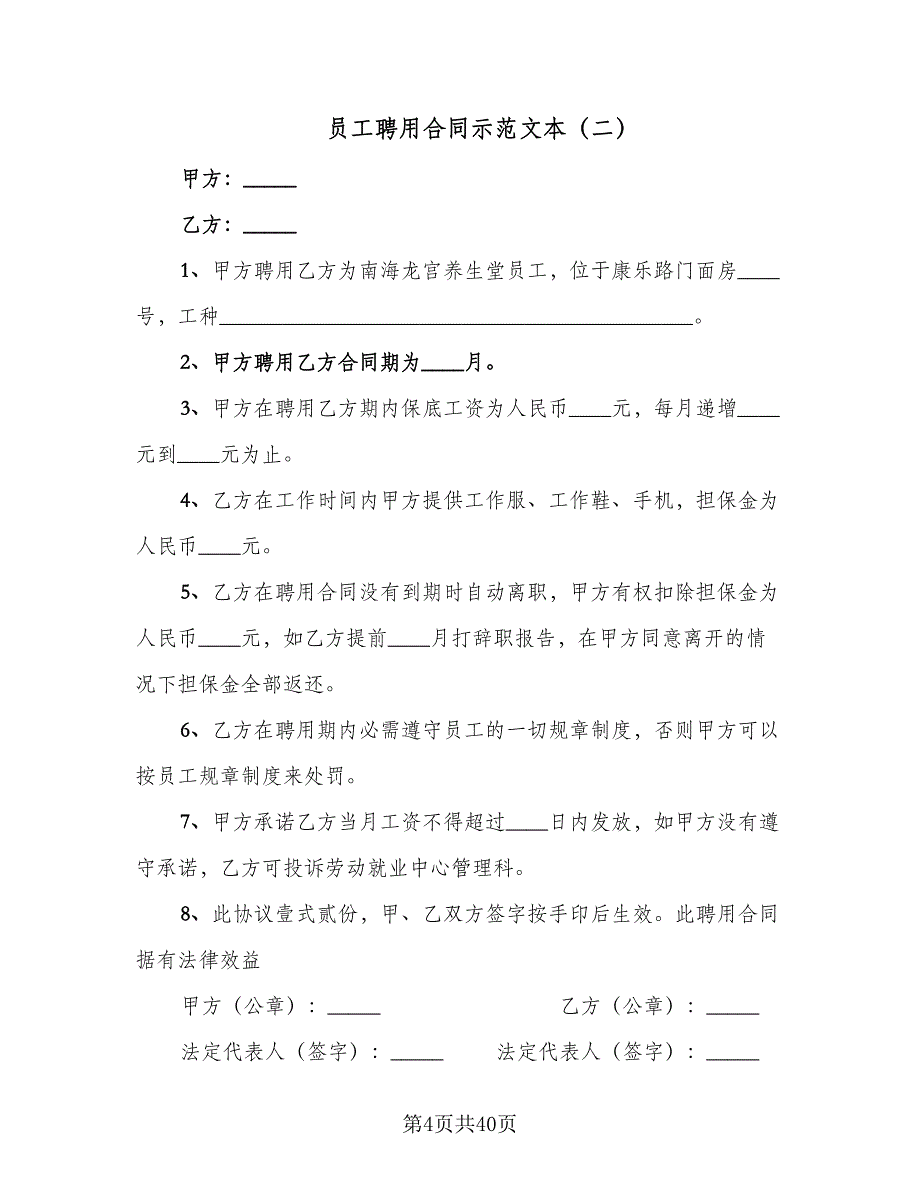 员工聘用合同示范文本（二）
甲方：_____
乙方：_____
1、甲方聘用乙方为南海龙官养生堂员工，位于康乐路门面房____
号，工种____________________________________________。
2、甲方聘用乙方合同期为____月。
3、甲方在聘用乙方期内保底工资为人民币____元，每月递增____
元到____元为止。
4、乙方在工作时间内甲方提供工作服、工作鞋、手机，担保金为
人民币____元。
5、乙方在聘用合同没有到期时自动离职，甲方有权扣除担保金为
人民币____元，如乙方提前____月打辞职报告，在甲方同意离开的情
况下担保金全部返还。
6、乙方在聘用期内必需遵守员工的一切规章制度，否则甲方可以
按员工规章制度来处罚。
7、甲方承诺乙方当月工资不得超过____日内发放，如甲方没有遵
守承诺，乙方可投诉劳动就业中心管理科。
8、此协议壹式贰份，甲、乙双方签字按手印后生效。此聘用合同
据有法律效益
甲方（公章）：_____ 乙方（公章）：_____
法定代表人（签字）：_____ 法定代表人（签字）：_____
第4页共40页